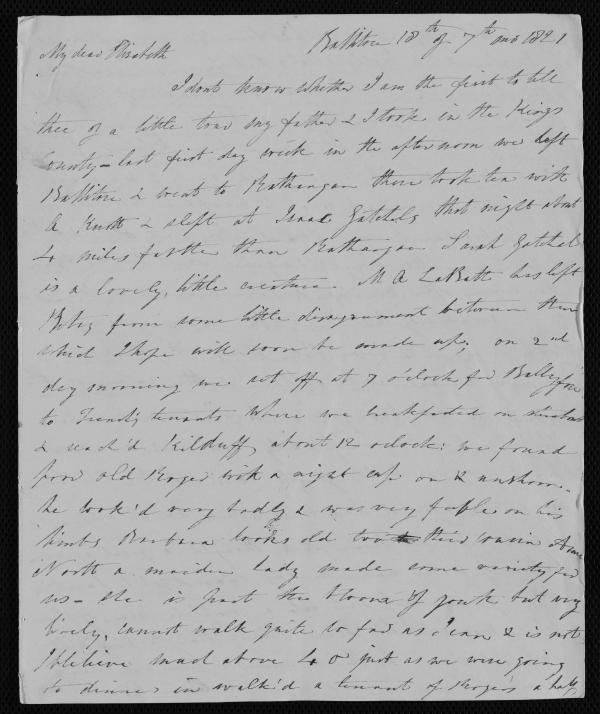 Ballitore 18th of 7th mo 1821
My dear Elizabeth
I dont know whether I am the first to tell
thee of a little tour my father & I took in the Kings
County - last first day week in the afternoon we left
Ballitore & went to Rathangan there took tea with
A Knott & slept at Isaac Gatchels that night about
4 miles farther than Rathangan Sarah Gatchel
is a lovely, little creature. M A LaBatt has left
Betsy from some little disagreement between them
which I hope will soon be made up; on 2nd
day morning we set off at 7 o'clock for
to tenants where we breakfasted on
& reach'd Kilduff about 12 oclock: we found
poor old Roger with a night cap on &
he look'd very badly & was very feeble on his
limbs Barbara looks old too their cousin Anne
North a maiden lady made some variety for
us - she is past the bloom of youth but very
lively, cannot walk quite so far as I can & is not
I believe much above 40 just as we were going
to dinner in walk'd a tenant of Roger's a half